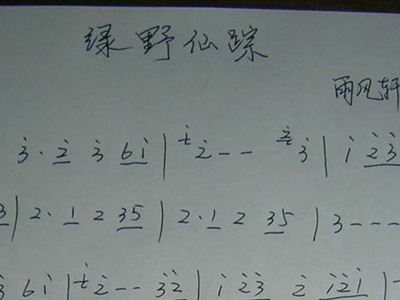 绿野仙踪
雨风轩
3· 2 3 61 | 1 2 - - 2 3 | 1 23
3 | 2· 1 2 35 | 2· 1 2 35 | 3 - - -
3 61 | 1 2 - - 32 | 1 23 2 121 |